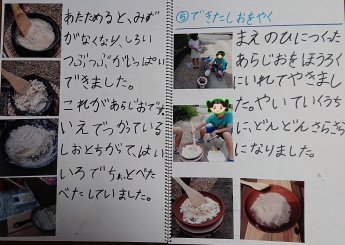 あたためると、みず
がなくなり、しろい
つぶつぶがいっぱい
できました。
これがあらじおです。
いえでつかっている
しおとちがって、はい
いろでちょっとべた
べたしていました。
⑤できたしおをやく
まえのひにつくった
あらじおをほうろく
にいれてやきまし
た。やいていくうち
に、どんどんさらさら
になりました。